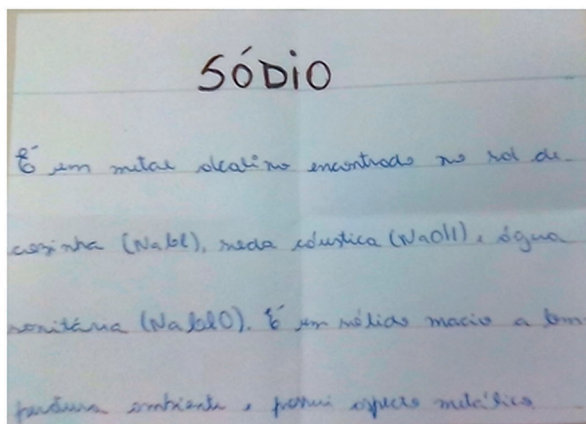 SÓDIO
É um metal alcalino encontrado no sal de
cozinha (NaCl), soda cáustica (NaOH), água
sanitária (NaClO). É um sólido macio a tem
peratura ambiente, possui aspecto metálico.